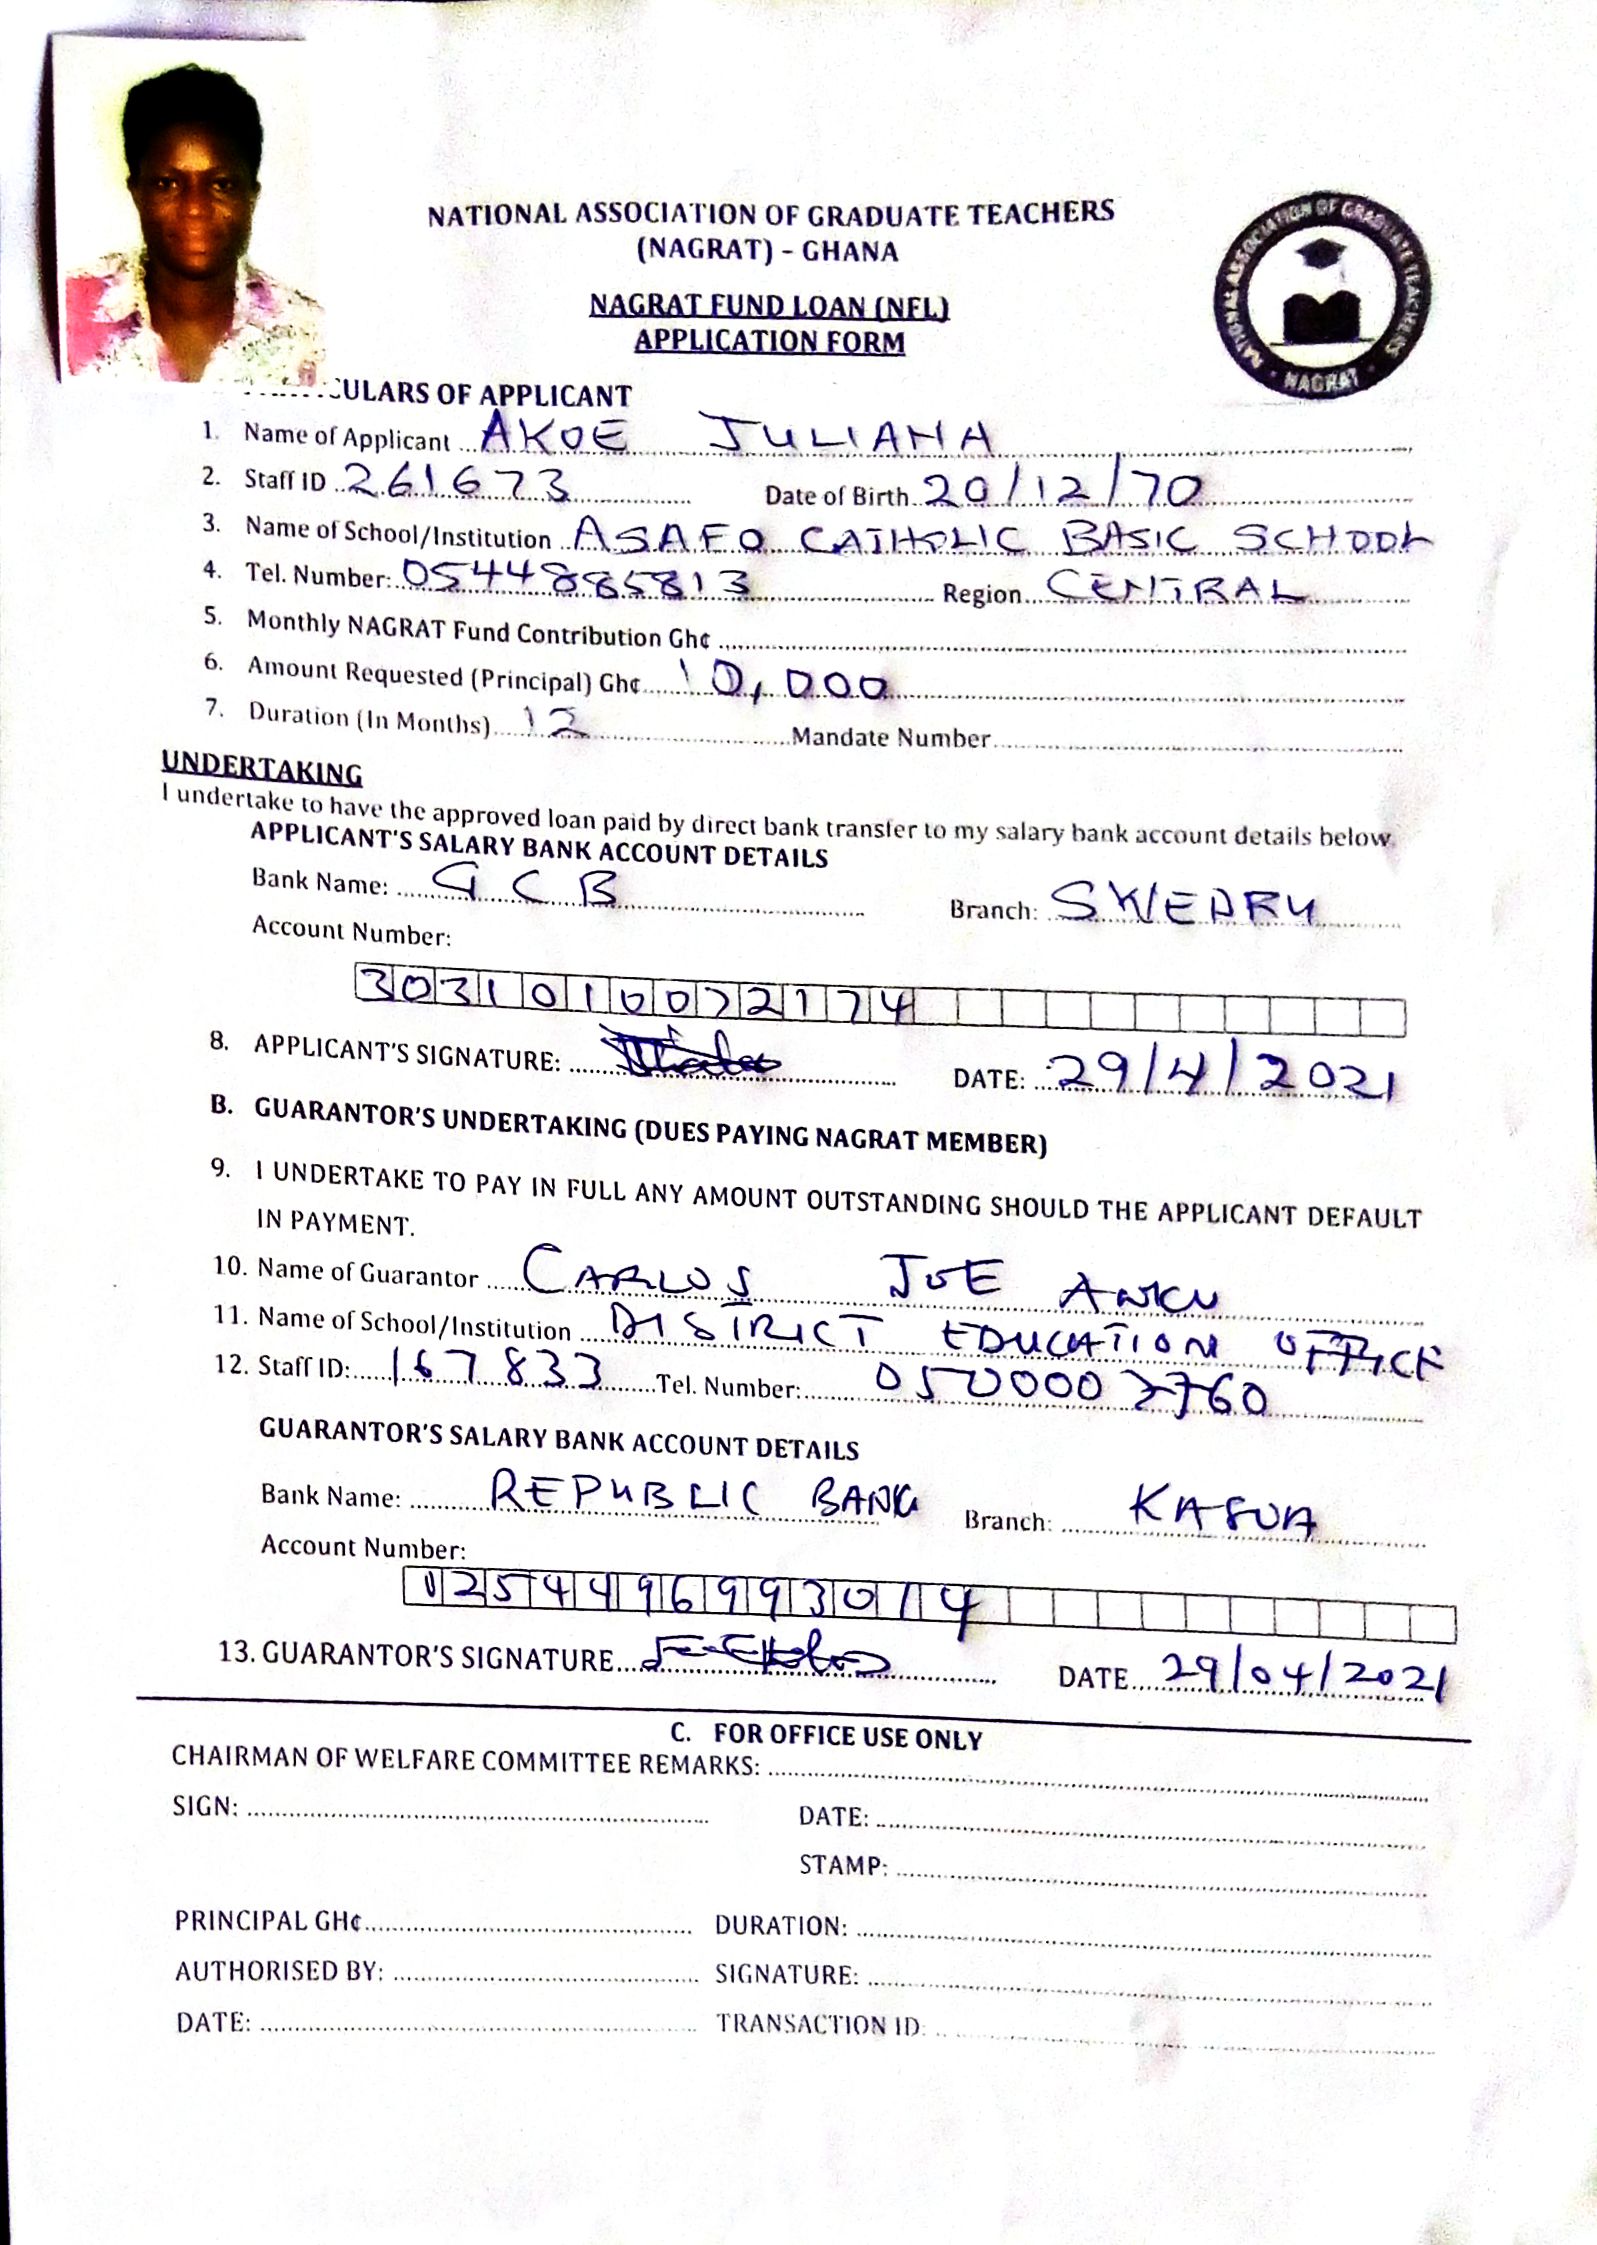 NATIONAL ASSOCIATION OF GRADUATE TEACHERS
(NAGRAT) - GHANA
NATIONAL ASSOCIATION OF GRADUATE TEACHERS
NAGRAT
NAGRAT FUND LOAN (NFL)
APPLICATION FORM
CULARS OF APPLICANT
1. Name of Applicant AKOE JULIANA
2. Staff ID 261673 Date of Birth 20/12/70
3. Name of School/Institution ASAFO CATHOLIC BASIC SCHOOL
4. Tel. Number: 0544885813 Region CENTRAL
5. Monthly NAGRAT Fund Contribution Gh¢
6. Amount Requested (Principal) Gh¢ 10,000
7. Duration (In Months) 12 Mandate Number
UNDERTAKING
I undertake to have the approved loan paid by direct bank transfer to my salary bank account details below.
APPLICANT'S SALARY BANK ACCOUNT DETAILS
Bank Name: GCB Branch: SWEDRU
Account Number:
3031010072174
8. APPLICANT'S SIGNATURE: DATE: 29/4/2021
B. GUARANTOR'S UNDERTAKING (DUES PAYING NAGRAT MEMBER)
9. I UNDERTAKE TO PAY IN FULL ANY AMOUNT OUTSTANDING SHOULD THE APPLICANT DEFAULT
IN PAYMENT.
10. Name of Guarantor CARLOS JOE ANKU
11. Name of School/Institution DISTRICT EDUCATION OFFICE
12. Staff ID: 167833 Tel. Number:
GUARANTOR'S SALARY BANK ACCOUNT DETAILS
Bank Name: REPUBLIC BANK Branch: KASOA
Account Number:
0254496993014
13. GUARANTOR'S SIGNATURE DATE 29/04/2021
C. FOR OFFICE USE ONLY
CHAIRMAN OF WELFARE COMMITTEE REMARKS:
SIGN: DATE:
STAMP:
PRINCIPAL GH¢ DURATION:
AUTHORISED BY: SIGNATURE:
DATE: TRANSACTION ID: